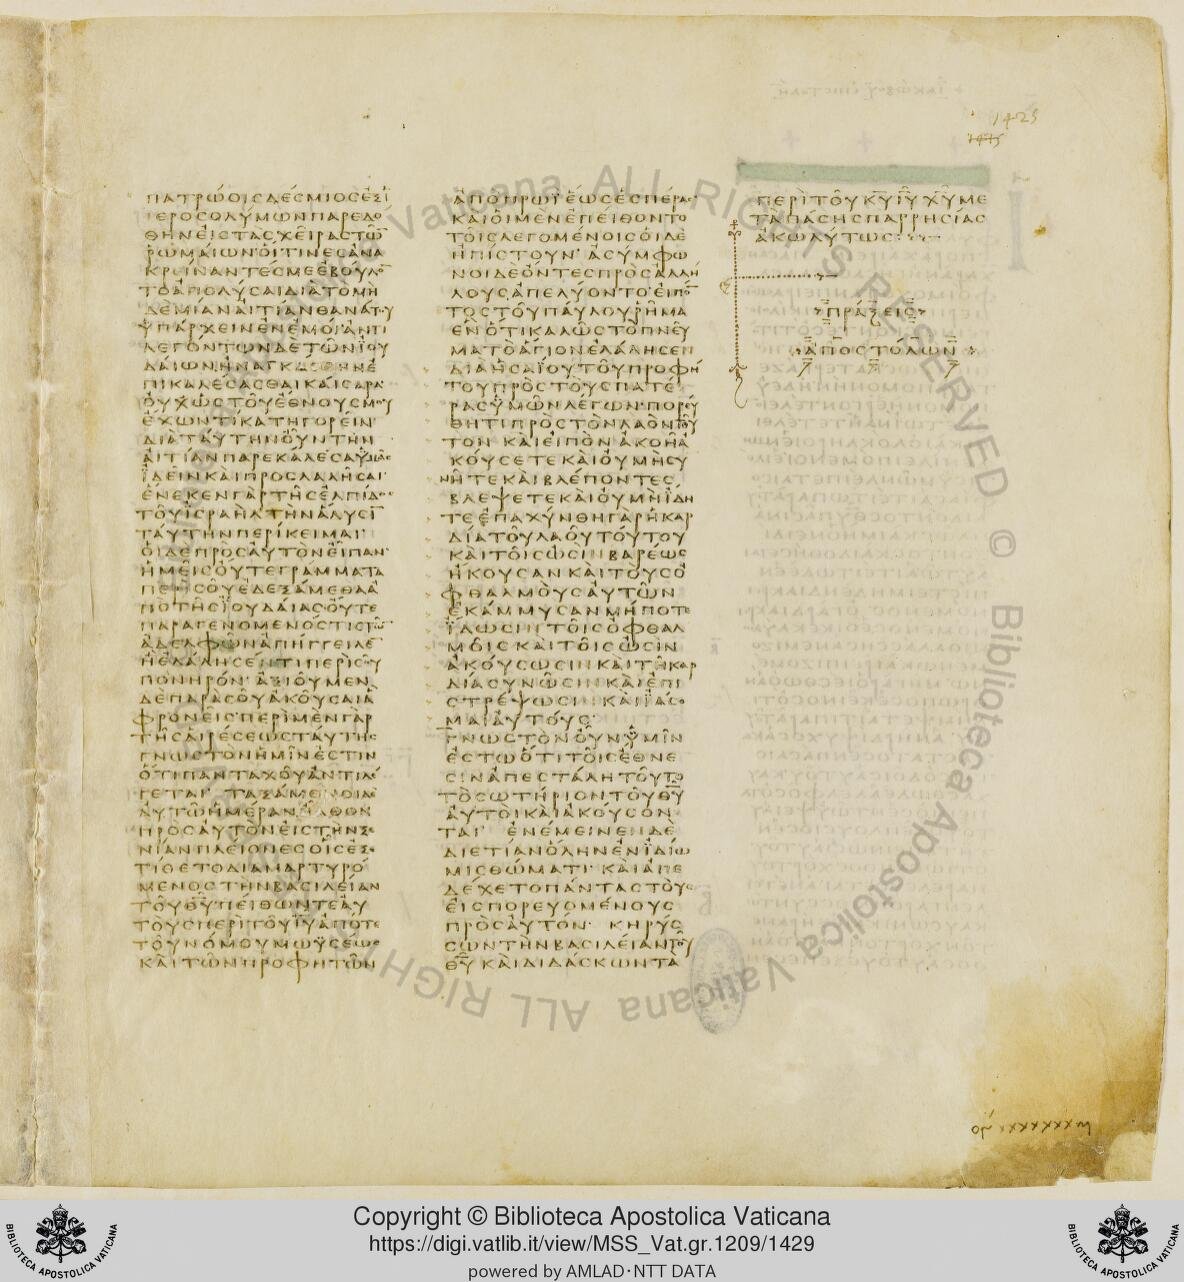 1425
ΠΑΤΡΩΟΙΣΔΕΣΜΙΟΣΕΞΙ
ΕΡΟΣΟΛΥΜΩΝΠΑΡΕΔΟ
ΘΗΝΕΙΣΤΑΣΧΕΙΡΑΣΤΩ̅
ΡΩΜΑΙΩΝ·ΟΙΤΙΝΕΣΑΝΑ
ΚΡΙΝΑΝΤΕΣΜΕΕΒΟΥΛΟ̅
ΤΟΑΠΟΛΥΣΑΙΔΙΑΤΟΜΗ
ΔΕΜΙΑΝΑΙΤΙΑΝΘΑΝΑΤΟΥ
ΥΠΑΡΧΕΙΝΕΝΕΜΟΙ·ΑΝΤΙ
ΛΕΓΟΝΤΩΝΔΕΤΩΝΙΟΥ
ΔΑΙΩΝΗΝΑΓΚΑΣΘΗΝΕ
ΠΙΚΑΛΕΣΑΣΘΑΙΚΑΙΣΑΡΑ
ΟΥΧΩΣΤΟΥΕΘΝΟΥΣΜΟΥ
ΕΧΩΝΤΙΚΑΤΗΓΟΡΕΙΝ·
ΔΙΑΤΑΥΤΗΝΟΥΝΤΗΝ
ΑΙΤΙΑΝΠΑΡΕΚΑΛΕΣΑΫΜΑΣ
ΪΔΕΙΝΚΑΙΠΡΟΣΛΑΛΗΣΑΙ·
ΕΝΕΚΕΝΓΑΡΤΗΣΕΛΠΙΔΟΣ
ΤΟΥΙΣΡΑΗΛΤΗΝΑΛΥΣΙ̅
ΤΑΥΤΗΝΠΕΡΙΚΕΙΜΑΙ·
ΟΙΔΕΠΡΟΣΑΥΤΟΝΕΙΠΑΝ·
ΗΜΕΙΣΟΥΤΕΓΡΑΜΜΑΤΑ
ΠΕΡΙΣΟΥΕΔΕΞΑΜΕΘΑΑ
ΠΟΤΗΣΪΟΥΔΑΙΑΣΟΥΤΕ
ΠΑΡΑΓΕΝΟΜΕΝΟΣΤΙΣΤΩ̅
ΑΔΕΛΦΩΝΑΠΗΓΓΕΙΛΕ
ΗΕΛΑΛΗΣΕΝΤΙΠΕΡΙΣΟΥ
ΠΟΝΗΡΟΝ·ΑΞΙΟΥΜΕΝ
ΔΕΠΑΡΑΣΟΥΑΚΟΥΣΑΙΑ
ΦΡΟΝΕΙΣΠΕΡΙΜΕΝΓΑΡ
ΤΗΣΑΙΡΕΣΕΩΣΤΑΥΤΗΣ
ΓΝΩΣΤΟΝΗΜΙΝΕΣΤΙΝ
ΟΤΙΠΑΝΤΑΧΟΥΑΝΤΙΛΕ
ΓΕΤΑΙ· ΤΑΞΑΜΕΝΟΙΔΕ
ΑΥΤΩΗΜΕΡΑΝΗΛΘΟΝ
ΠΡΟΣΑΥΤΟΝΕΙΣΤΗΝΞΕ
ΝΙΑΝΠΛΕΙΟΝΕΣΟΙΣΕΞΕ
ΤΙΘΕΤΟΔΙΑΜΑΡΤΥΡΟ
ΜΕΝΟΣΤΗΝΒΑΣΙΛΕΙΑΝ
ΤΟΥΘ̅Υ̅ΠΕΙΘΩΝΤΕΑΥ
ΤΟΥΣΠΕΡΙΤΟΥΙ̅Υ̅ΑΠΟΤΕ
ΤΟΥΝΟΜΟΥΜΩΫΣΕΩΣ
ΚΑΙΤΩΝΠΡΟΦΗΤΩΝ
ΑΠΟΠΡΩΪΕΩΣΕΣΠΕΡΑΣ
ΚΑΙΟΙΜΕΝΕΠΕΙΘΟΝΤΟ
ΤΟΙΣΛΕΓΟΜΕΝΟΙΣΟΙΔΕ
ΗΠΙΣΤΟΥΝ· ΑΣΥΜΦΩ
ΝΟΙΔΕΟΝΤΕΣΠΡΟΣΑΛΛΗ
ΛΟΥΣΑΠΕΛΥΟΝΤΟ·ΕΙΠΟ̅
ΤΟΣΤΟΥΠΑΥΛΟΥΡΗΜΑ
ΕΝΟΤΙΚΑΛΩΣΤΟΠΝΕΥ
ΜΑΤΟΑΓΙΟΝΕΛΑΛΗΣΕΝ
ΔΙΑΗΣΑΪΟΥΤΟΥΠΡΟΦΗ
ΤΟΥΠΡΟΣΤΟΥΣΠΑΤΕ
ΡΑΣΫΜΩΝΛΕΓΩΝ·ΠΟΡΕΥ
ΘΗΤΙΠΡΟΣΤΟΝΛΑΟΝΤΟΥ
ΤΟΝ ΚΑΙΕΙΠΟΝ ΑΚΟΗΑ
ΚΟΥΣΕΤΕΚΑΙΟΥΜΗΣΥ
ΝΗΤΕΚΑΙΒΛΕΠΟΝΤΕΣ
ΒΛΕΨΕΤΕΚΑΙΟΥΜΗΙΔΗ
ΤΕΕΠΑΧΥΝΘΗΓΑΡΗΚΑΡ
ΔΙΑΤΟΥΛΑΟΥΤΟΥΤΟΥ
ΚΑΙΤΟΙΣΩΣΙΝΒΑΡΕΩΣ
ΗΚΟΥΣΑΝΚΑΙΤΟΥΣΟ
ΦΘΑΛΜΟΥΣΑΥΤΩΝ
ΕΚΑΜΜΥΣΑΝΜΗΠΟΤΕ
ΪΔΩΣΙΝΤΟΙΣΟΦΘΑΛ
ΜΟΙΣΚΑΙΤΟΙΣΩΣΙΝ
ΑΚΟΥΣΩΣΙΝΚΑΙΤΗΚΑΡ
ΔΙΑΣΥΝΩΣΙΝΚΑΙΕΠΙ
ΣΤΡΕΨΩΣΙΝΚΑΙΪΑΣΟ
ΜΑΙΑΥΤΟΥΣ·
ΓΝΩΣΤΟΝΟΥΝΫΜΙΝ
ΕΣΤΩΟΤΙΤΟΙΣΕΘΝΕ
ΣΙΝΑΠΕΣΤΑΛΗΤΟΥΤΟ
ΤΟΣΩΤΗΡΙΟΝΤΟΥΘ̅Υ̅
ΑΥΤΟΙΚΑΙΑΚΟΥΣΟΝ
ΤΑΙ· ΕΝΕΜΕΙΝΕΝΔΕ
ΔΙΕΤΙΑΝΟΛΗΝΕΝΪΔΙΩ
ΜΙΣΘΩΜΑΤΙ· ΚΑΙΑΠΕ
ΔΕΧΕΤΟΠΑΝΤΑΣΤΟΥΣ
ΕΙΣΠΟΡΕΥΟΜΕΝΟΥΣ
ΠΡΟΣΑΥΤΟΝ· ΚΗΡΥΣ
ΣΩΝΤΗΝΒΑΣΙΛΕΙΑΝΤΟΥ
Θ̅Υ̅ΚΑΙΔΙΔΑΣΚΩΝΤΑ
ΠΕΡΙΤΟΥΚ̅Υ̅Ι̅Υ̅Χ̅Υ̅ΜΕ
ΤΑΠΑΣΗΣΠΑΡΡΗΣΙΑΣ
ΑΚΩΛΥΤΩΣ
ΠΡΑΞΕΙΣ
ΑΠΟΣΤΟΛΩΝ
Copyright © Biblioteca Apostolica Vaticana
https://digi.vatlib.it/view/MSS_Vat.gr.1209/1429
powered by AMLAD·NTT DATA